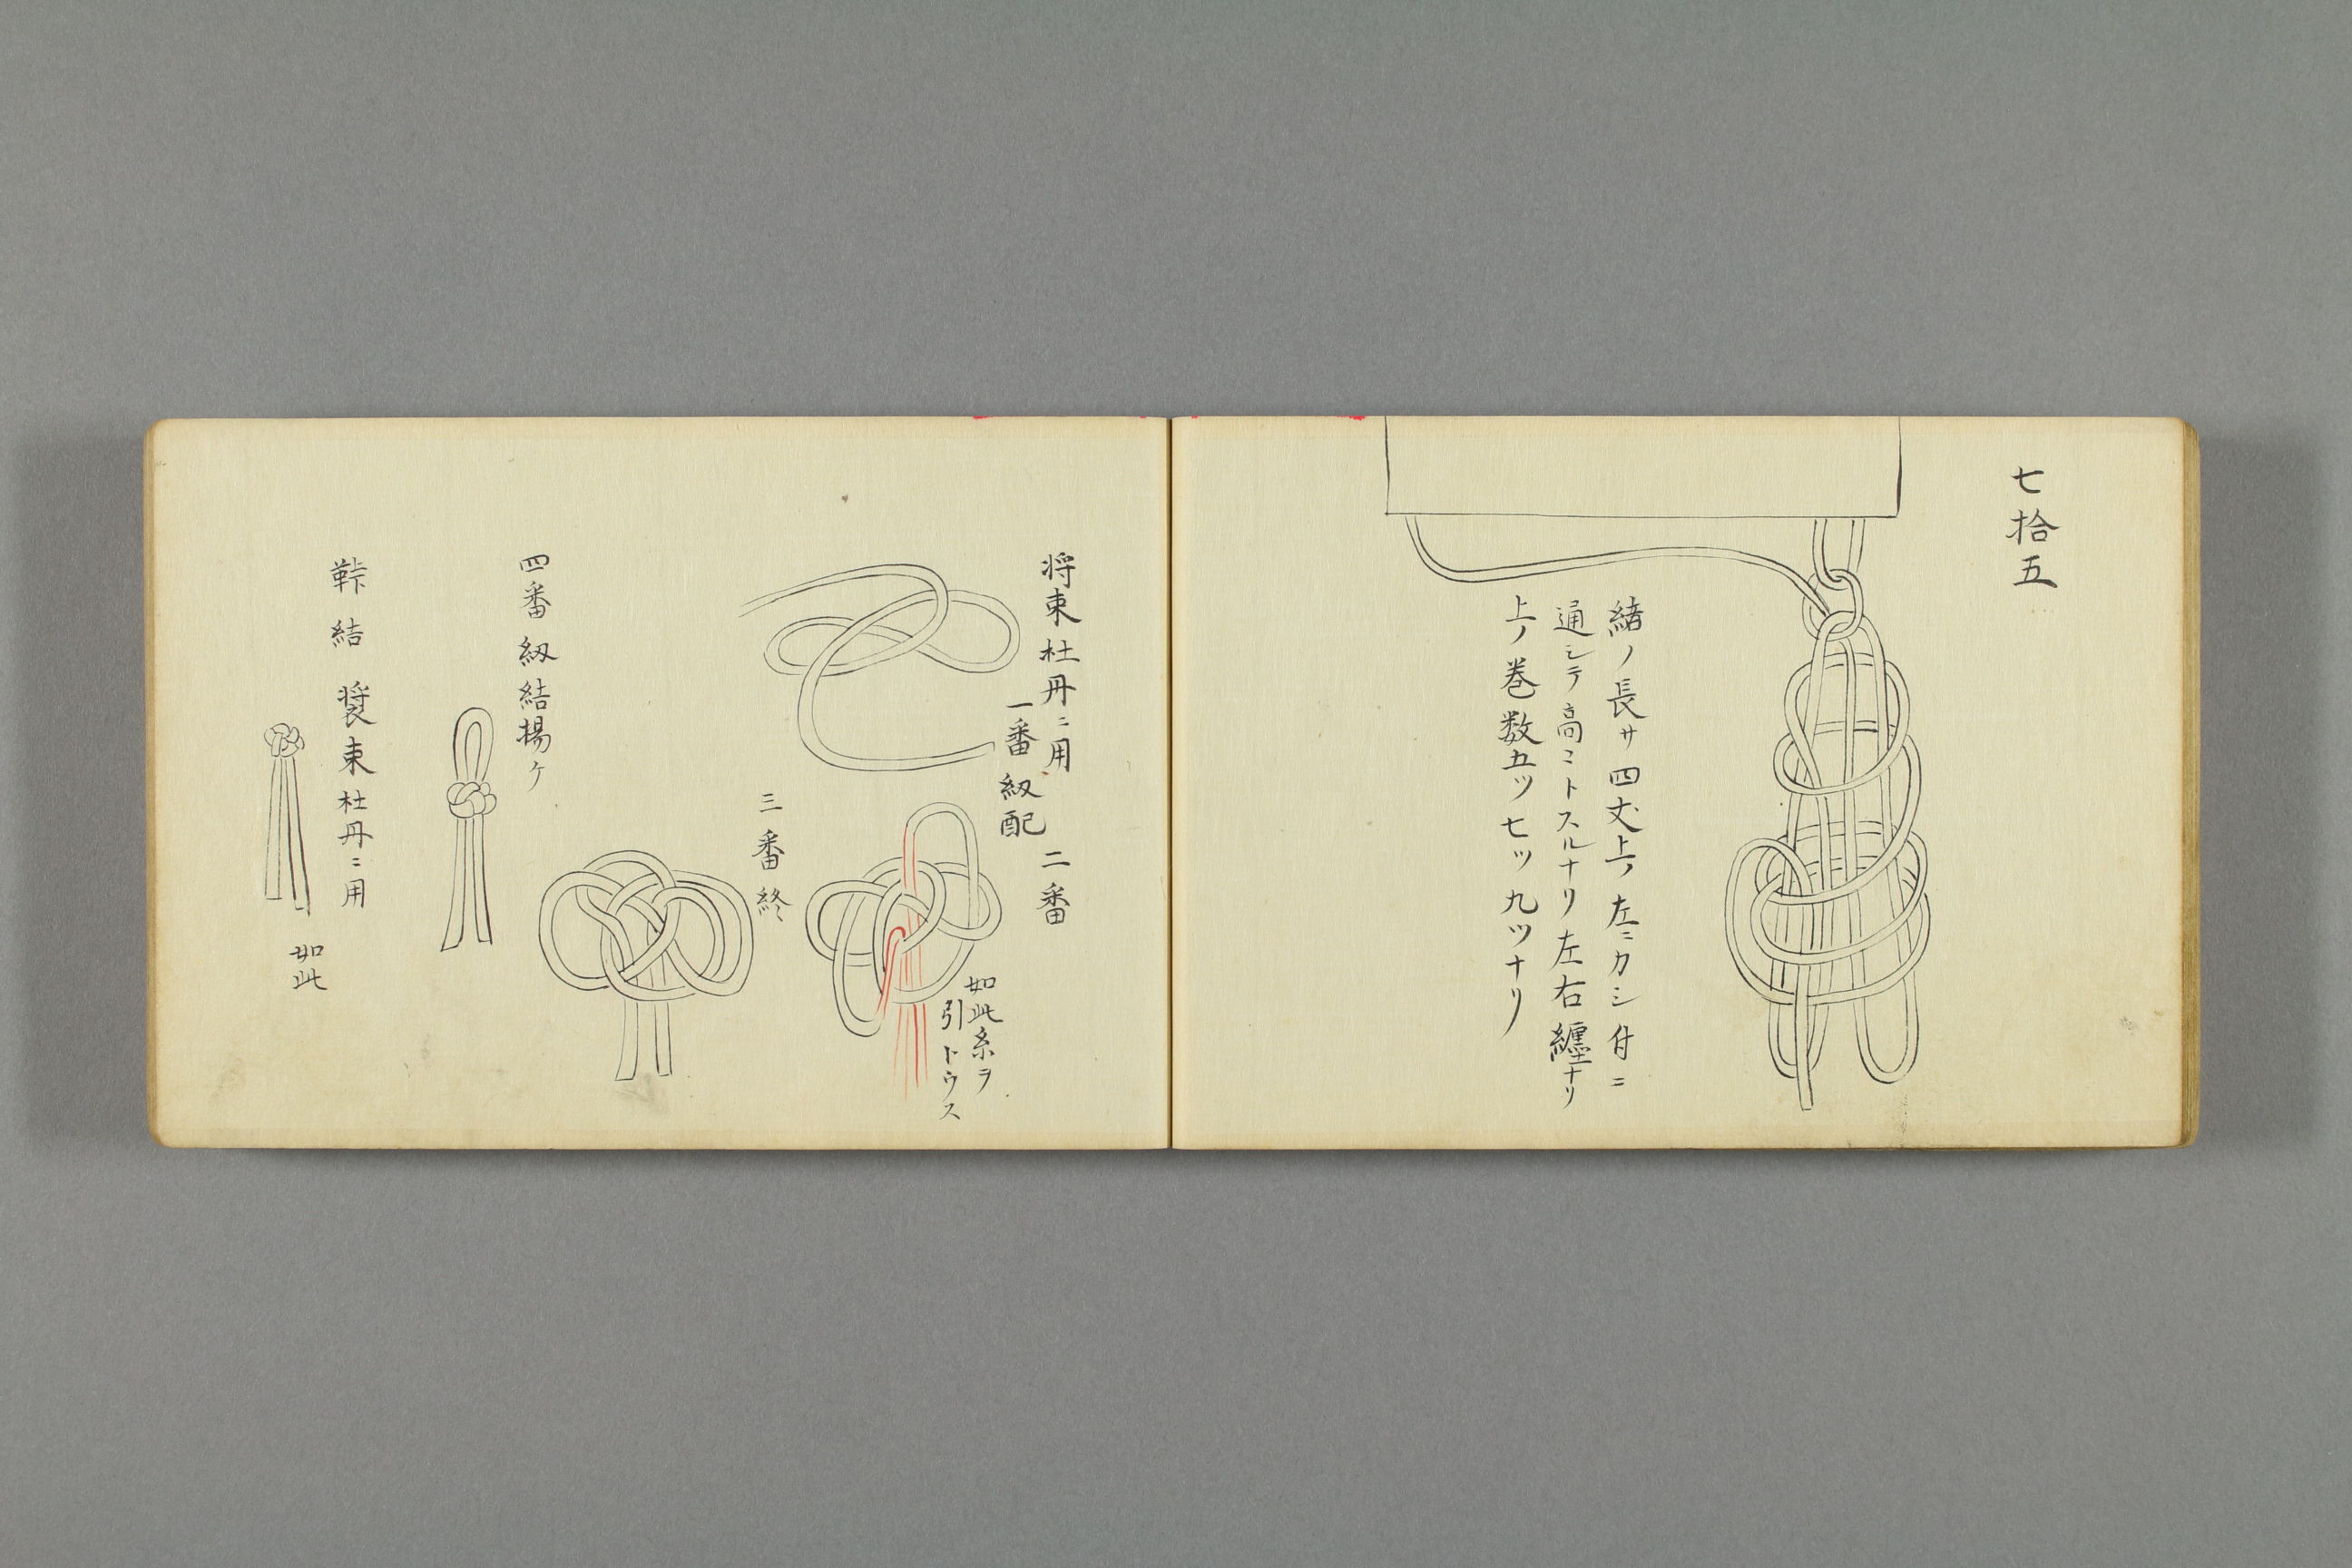 七拾五
緒ノ長サ四丈上ノ左ニカシ付ニ
通シテ高ミトスルナリ左右纏ナリ
上ノ巻数五ツ七ツ九ツナリ
将束杜丹ニ用
一番 紉配
二番
如此糸ヲ
引トウス
三番 終
四番 紉結揚ケ
結 装束杜丹ニ用
如此